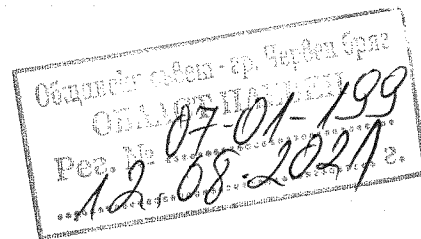 Общински съвет - гр. Червен бряг
ОБЛАСТ ПЛЕВЕН
Рег. № 07-01-199
12.08.2021 г.